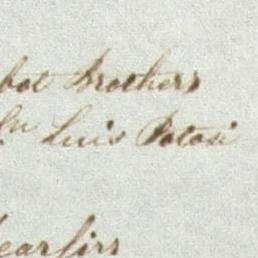 bot Brothers
Sn Luis Potosi
Dear sirs